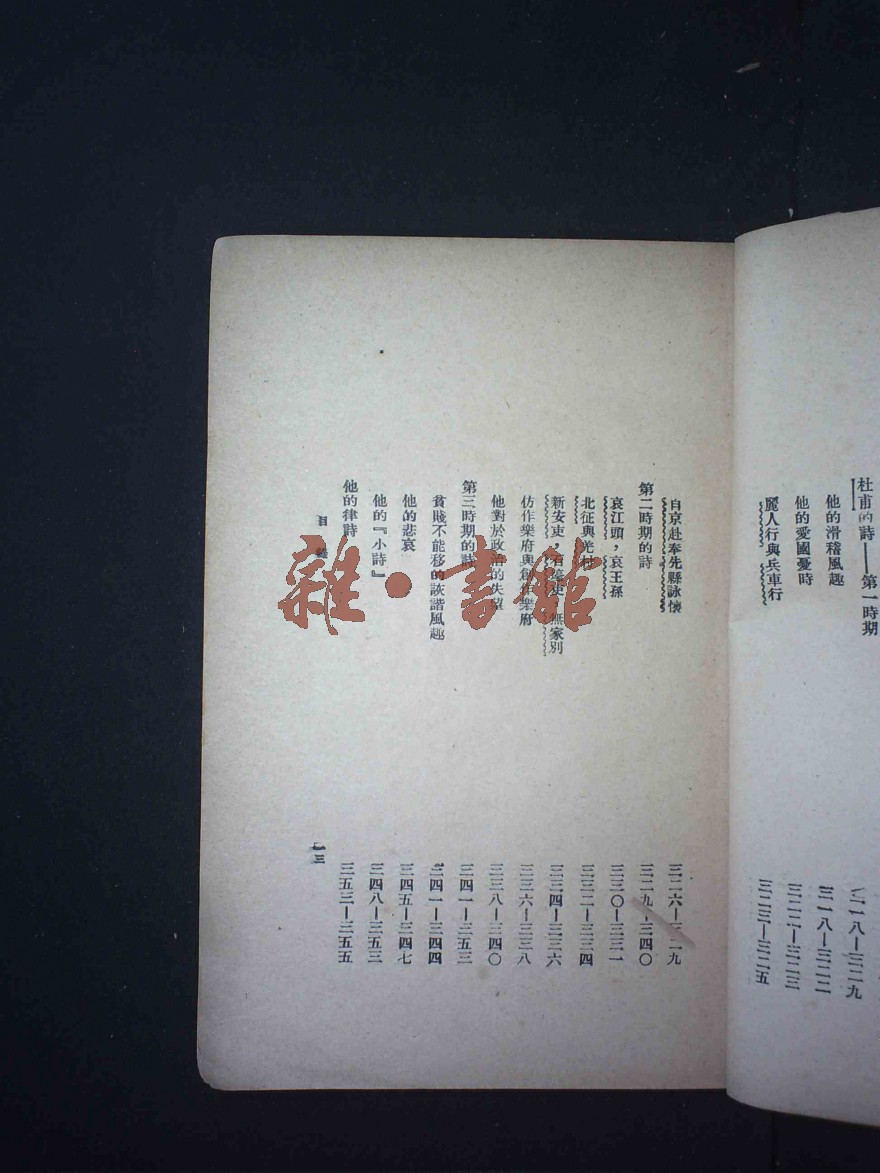 杜甫的詩——第一時期 三一八—三二九
他的滑稽風趣 三一八—三二二
他的愛國憂時 三二二—三二三
麗人行與兵車行 三二三—三二五
自京赴奉先縣詠懷 三二六—三二九
第二時期的詩 三二九—三四〇
哀江頭，哀王孫 三三〇—三三一
北征與羌村 三三二—三三四
新安吏，石壕吏，無家別 三三四—三三六
仿作樂府與創作樂府 三三六—三三八
他對於政治的失望 三三八—三四〇
第三時期的詩 三四一—三五三
貧賤不能移的詼諧風趣 三四一—三四四
他的悲哀 三四五—三四七
他的『小詩』 三四八—三五三
他的律詩 三五三—三五五
目錄
一三
雜·書館